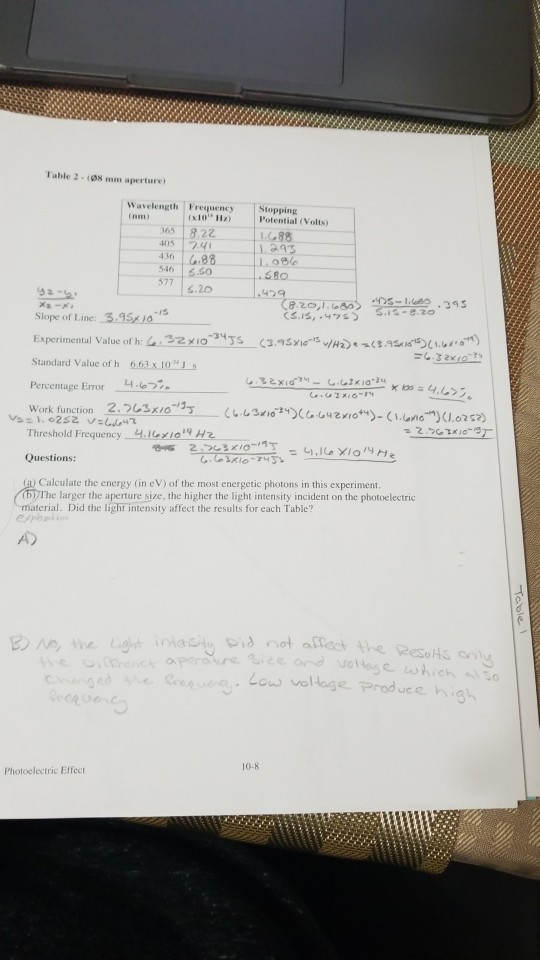 Table 2 - (Ø8 mm aperture)
Wavelength (nm) Frequency (x10¹⁴ Hz) Stopping Potential (Volts)
365 8.22 1.688
405 7.41 1.293
436 6.88 1.086
546 5.50 .580
577 5.20 .479
y2-y1
x2-x1
(8.20,1.680) .475-1.680 .395
(5.15,.475) 5.15-8.20
Slope of Line: 3.95x10⁻¹⁵
Experimental Value of h: 6.32x10⁻³⁴Js (3.95x10⁻¹⁵ v/Hz)e =(3.95x10⁻¹⁵)(1.6x10⁻¹⁹)
=6.32x10⁻³⁴
Standard Value of h 6.63 x 10⁻³⁴ J s
Percentage Error 4.67% 6.32x10⁻³⁴ - 6.63x10⁻³⁴ x100 = 4.67%
6.63x10⁻³⁴
Work function 2.763x10⁻¹⁹J (6.63x10⁻³⁴)(6.642x10¹⁴)-(1.6x10⁻¹⁹)(1.0252)
Vs=1.0252 V=6.642 = 2.763x10⁻¹⁹J
Threshold Frequency 4.16x10¹⁴ Hz
2.763x10⁻¹⁹J = 4.16x10¹⁴Hz
6.63x10⁻³⁴Js
Questions:
(a) Calculate the energy (in eV) of the most energetic photons in this experiment.
(b) The larger the aperture size, the higher the light intensity incident on the photoelectric
material. Did the light intensity affect the results for each Table?
A)
Table 1
B) No, the light intasity Did not affect the Resolts only
the Diffrenct aperature Size and voltage which also
changed the frequency. Low voltage produce high
frequency
Photoelectric Effect
10-8